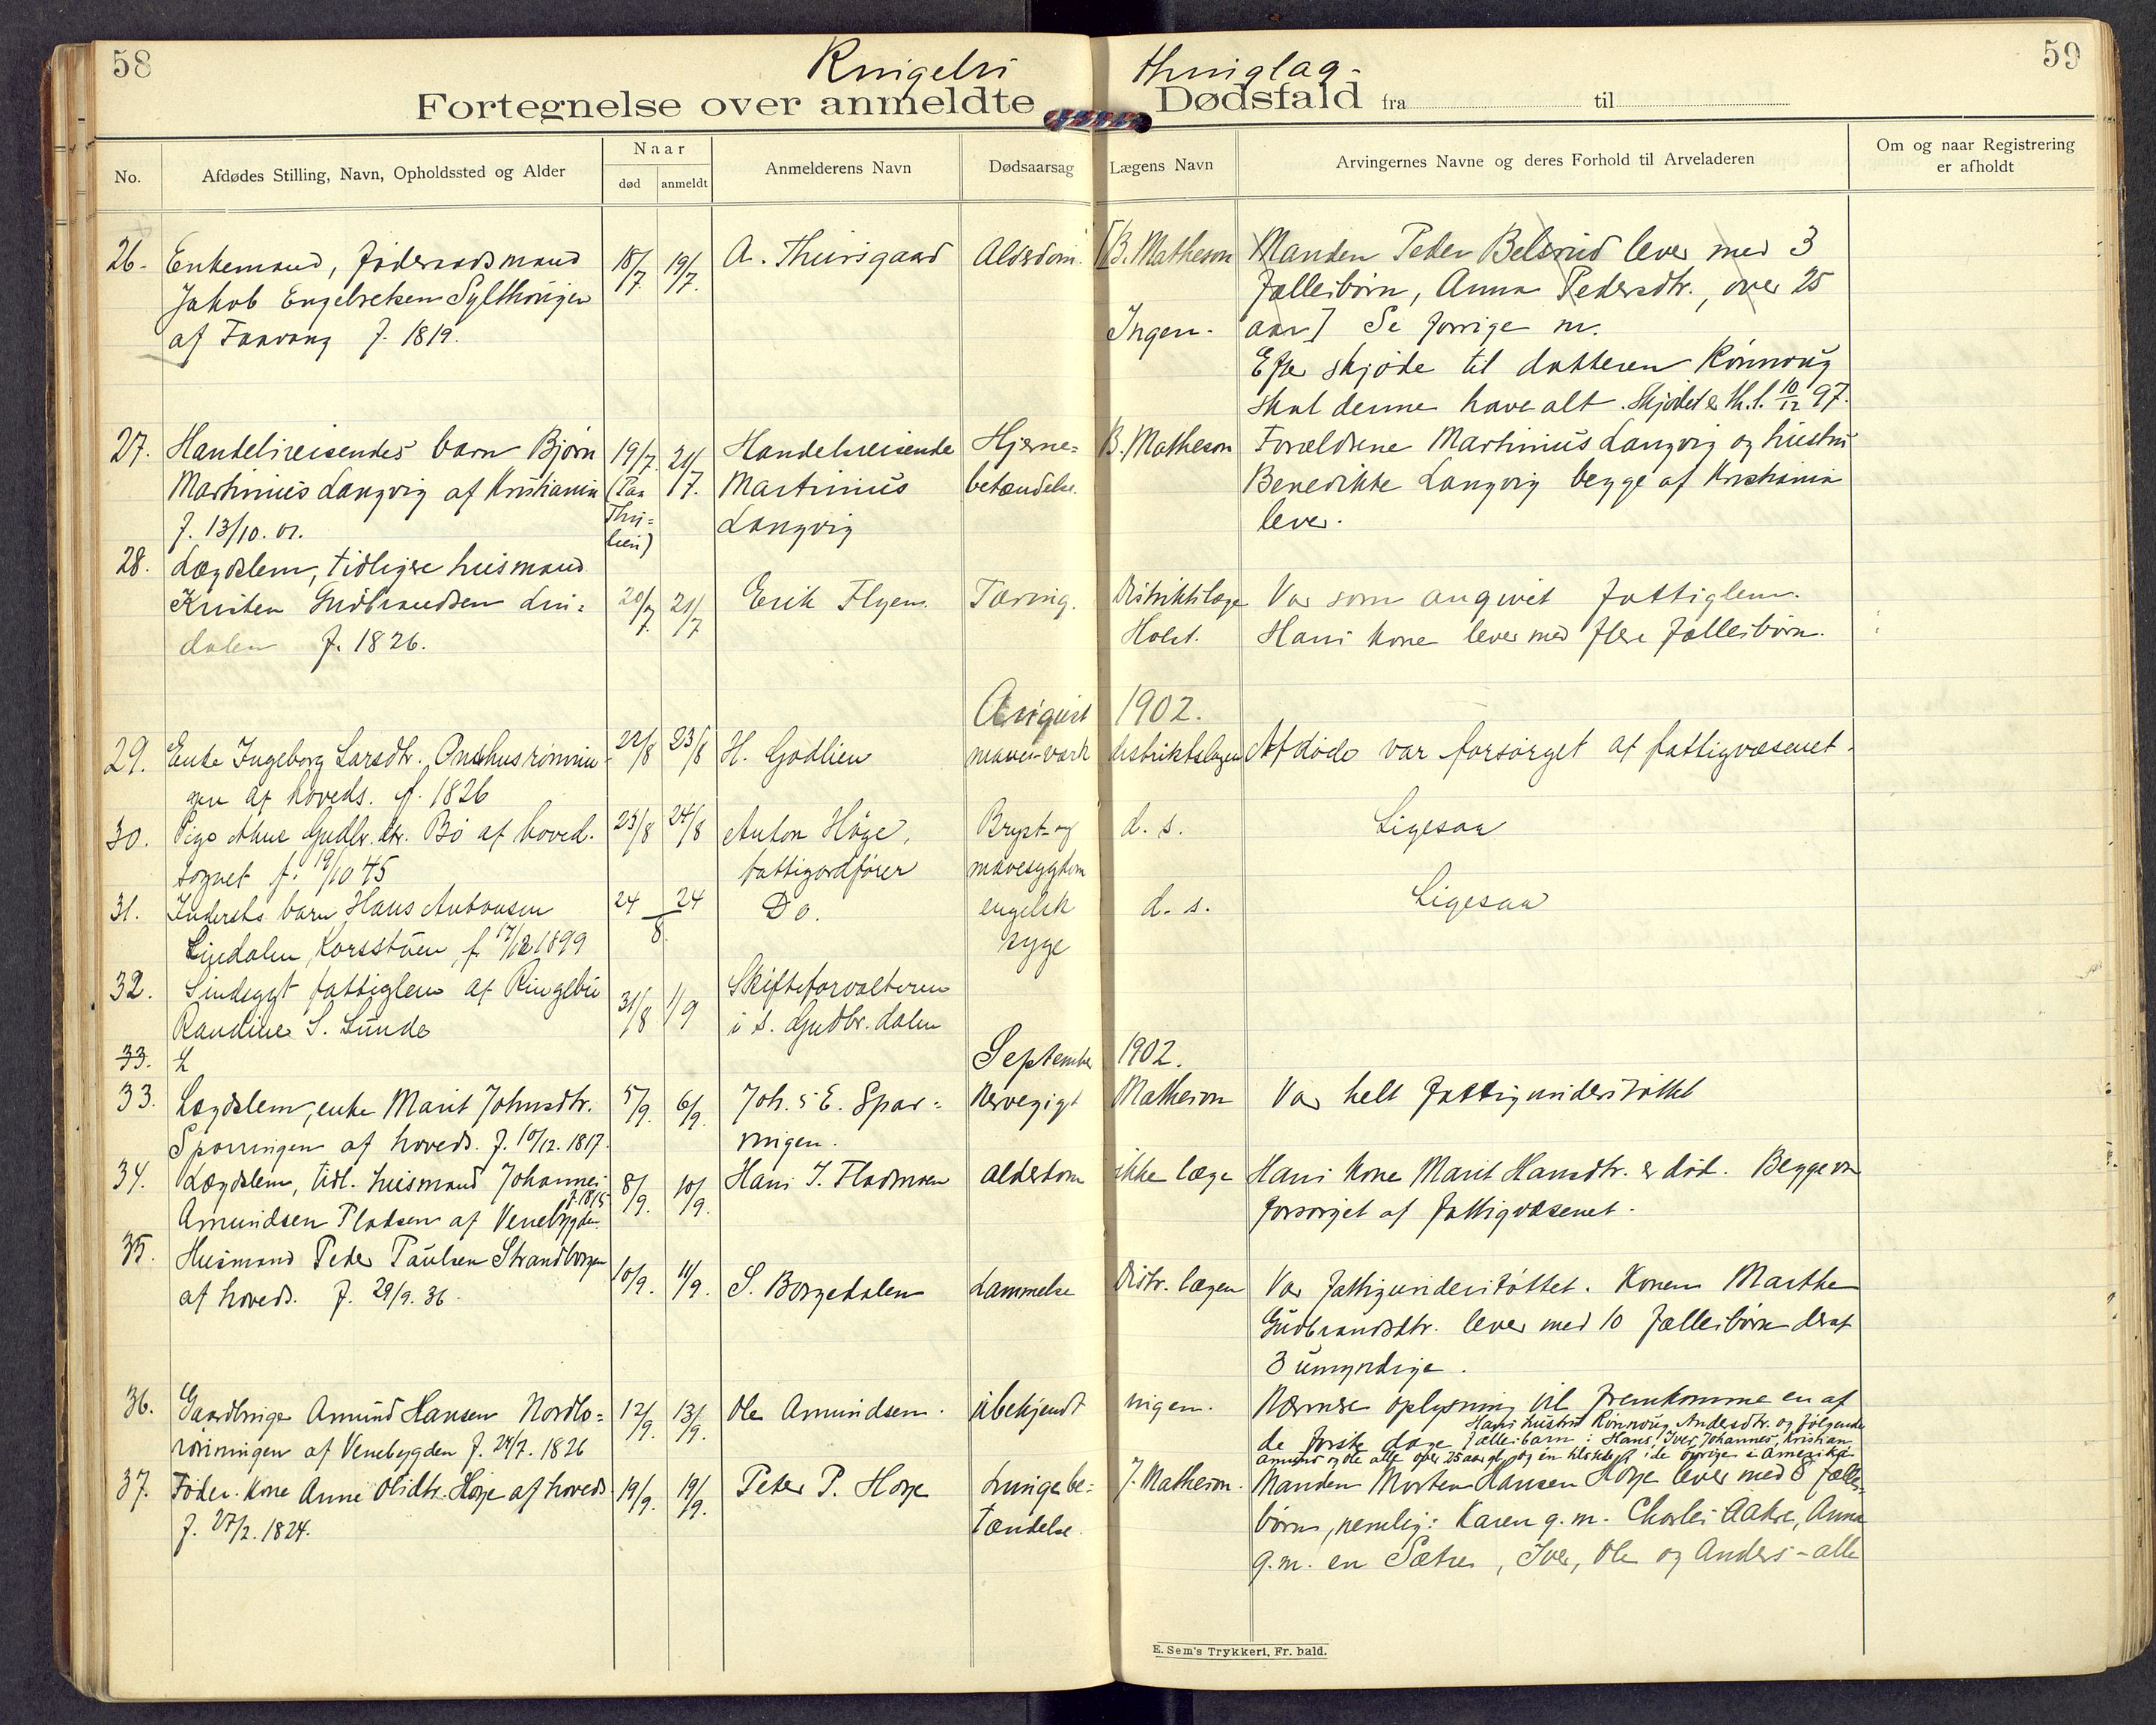 58
59
Ringebu thinglag.
Fortegnelse over anmeldte Dødsfald fra til
No.
Afdødes Stilling, Navn, Opholdssted og Alder
Naar
død
anmeldt
Anmelderens Navn
Dødsaarsag
Lægens Navn
Arvingernes Navne og deres Forhold til Arveladeren
Om og naar Registrering
er afholdt
26. Enkemand, føderaadsmand 18/7. 19/7. A. Thorsgaard Alderdom. [B. Matheson Manden Peder Belsrud lever med 3
Jakob Engebretsen Sylthaugen fællesbørn, Anna Pedersdtr., over 25
af Faavang f. 1819. Ingen. aar] Se forrige nr.
Efter skjøde til datteren Rønnoug
skal denne have alt. Skjødet er th.l. 10/12 97.
27. Handelsreisendes barn Bjørn 19/7. 21/7. Handelsreisende Hjerne= B. Matheson Forældrene Martinius Langvig og hustru
Martinius Langvig af Kristiania (Paa Martinius betændelse. Benedikte Langvig begge af Kristiania
f. 13/10. 01. Langvig lever.
28. Lægdslem, tidligere husmand
Kristen Gudbrandsen Lin= 20/7. 21/7 Erik Flyen. Tæring. Distriktslæge Var som angivet fattiglem.
dalen f. 1826. Holst. Hans kone lever med flere fællesbørn.
August 1902.
29. Enke Ingeborg Larsdtr. 22/8 23/8 H. Godlien mave-værk distriktslægen Afdøde var forsørget af fattigvæsenet.
gen af hoveds. f. 1826
30. Pige Ane Gudbr.dtr. Bø af hoved. 23/8 24/8 Anton Høge, Bryst- og d. s. Ligesaa
sognet f. 19/10 45 fattigordfører mavesygdom
31. Indersts barn Hans Antonsen 24 24 Do. engelsk d. s. Ligesaa
8.
Lindalen, Korsstuen, f. 17/12 1899 syge
32. Sindsygt fattiglem af Ringebu 31/8 1/9 Skifteforvalteren
Randine S. Lunde i s. Gudbr.dalen
33. L September 1902.
33. Lægdslem, enke Marit Johnsdtr. 5/9. 6/9. Joh. s. E. Spor= Nervegigt Matheson Var helt fattigunderstøttet
Sporningen af hoveds. f. 10/12. 1817. ningen.
34. Lægdslem, tidl. husmand Johannes 8/9. 10/9. Hans J. Fladmoen alderdom ikke læge Hans kone Marit Hansdtr. er død. Begge var
f. 1815
Amundsen Pladsen af Venebygden. forsørget af fattigvæsenet.
35. Husmand Peder Paulsen Strandborgen 10/9. 11/9. S. Borgedalen Lammelse Distr. lægen Var fattigunderstøttet. Konen Marthe
af hoveds. f. 29/9. 36. Gudbrandsdtr. lever med 10 fællesbørn deraf
3 umyndige.
36. Gaardbruger Amund Hansen Nordlo= 12/9. 13/9. Ole Amundsen. ubekjendt ingen. Nærmere oplysning vil fremkomme en af
de første dage Hans hustru Rønnoug Andersdtr. og følgende
fællesbarn: Hans, Iver, Johannes, Kristian
Amund og Ole alle over 25 aar og én tilstede, de øvrige i Amerika
rønningen af Venebygden f. 24/7. 1826
37. Føder. kone Anne Olsdtr. Høge af hoveds 19/9. 19/9. Peter P. Høge Lungebe= J. Matheson. Manden Morten Hansen Høge lever med 8 fælles
f. 27/2. 1824. tændelse. børn, nemlig: Karen g.m. Charles Aakre, Anna
g.m. en Sætre, Iver, Ole og Anders - alle
E. Sem's Trykkeri, Fr. hald.